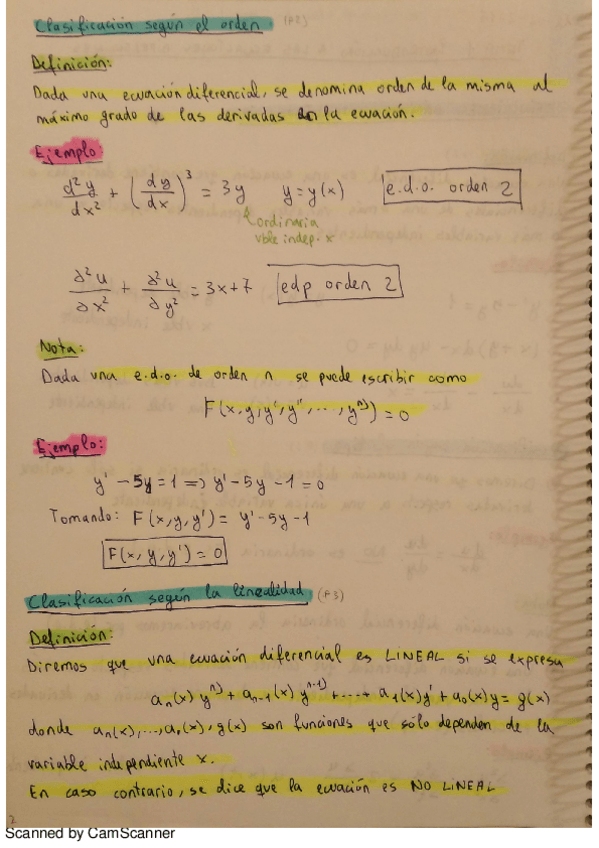 Clasificación según el orden (F2)
Definición:
Dada una ecuación diferencial, se denomina orden de la misma al
máximo grado de las derivadas en la ecuación.
Ejemplo
d²y/dx² + (dy/dx)³ = 3y y = y(x) e.d.o. orden 2
ordinaria
vble indep. x
∂²u/∂x² + ∂²u/∂y² = 3x+7 edp orden 2
Nota:
Dada una e.d.o. de orden n se puede escribir como
F(x,y,y',y'',...,yⁿ⁾) = 0
Ejemplo:
y' - 5y = 1 => y' - 5y - 1 = 0
Tomando: F(x,y,y') = y' - 5y - 1
F(x,y,y') = 0
Clasificación según la linealidad (F3)
Definición:
Diremos que una ecuación diferencial es LINEAL si se expresa
aₙ(x) yⁿ⁾ + aₙ₋₁(x) yⁿ⁻¹⁾ + ... + a₁(x)y' + a₀(x)y = g(x)
donde aₙ(x),...,a₀(x), g(x) son funciones que sólo dependen de la
variable independiente x.
En caso contrario, se dice que la ecuación es NO LINEAL
2
Scanned by CamScanner